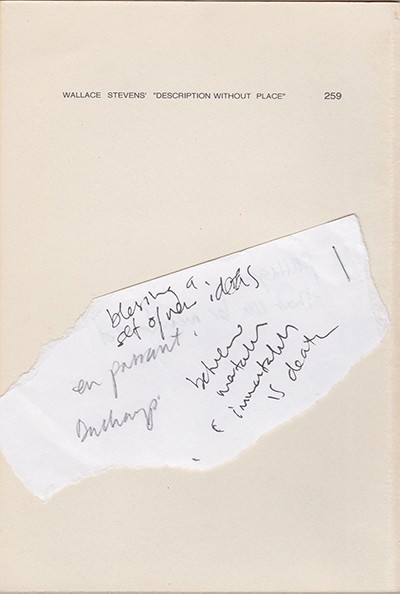 WALLACE STEVENS' "DESCRIPTION WITHOUT PLACE" 259
blessing a
set of new ideas
en passant,
Duchamp.
between
mortals
& immortals
is death